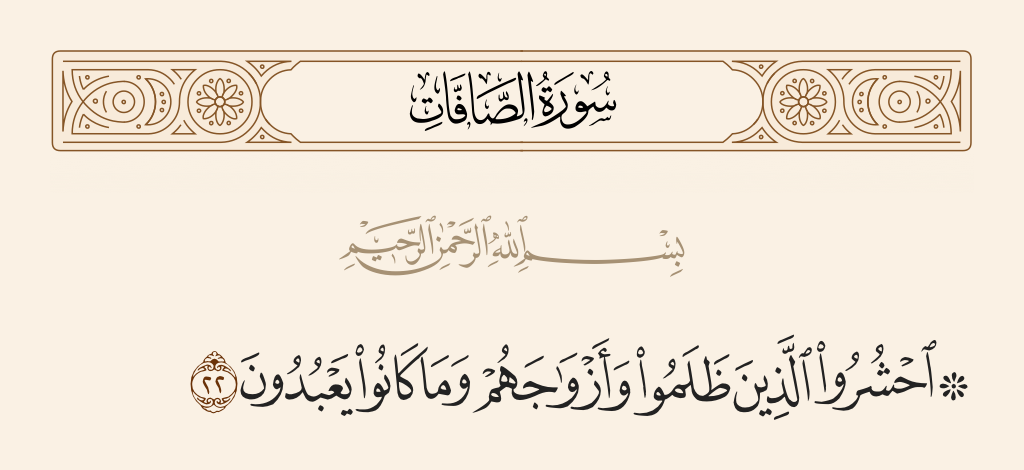 سُورَةُ الصَّافَّاتِ
بِسْمِ ٱللَّهِ ٱلرَّحْمَٰنِ ٱلرَّحِيمِ
۞ ٱحْشُرُوا۟ ٱلَّذِينَ ظَلَمُوا۟ وَأَزْوَٰجَهُمْ وَمَا كَانُوا۟ يَعْبُدُونَ ٢٢